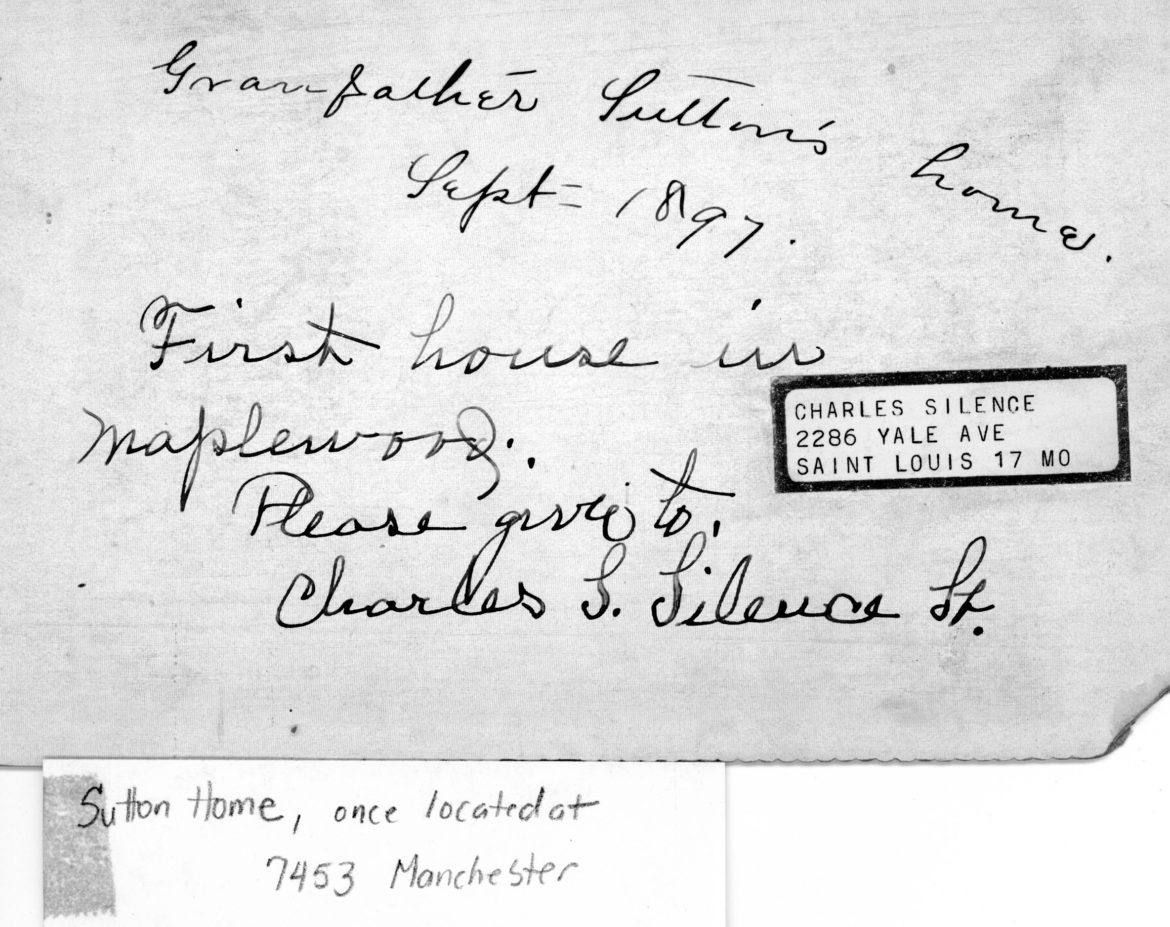 Granfather Sutton's home.
Sept = 1897.
First house in
Maplewood.
CHARLES SILENCE
2286 YALE AVE
SAINT LOUIS 17 MO
Please give to.
Charles S. Silence
Sutton Home, once located at
7453 Manchester